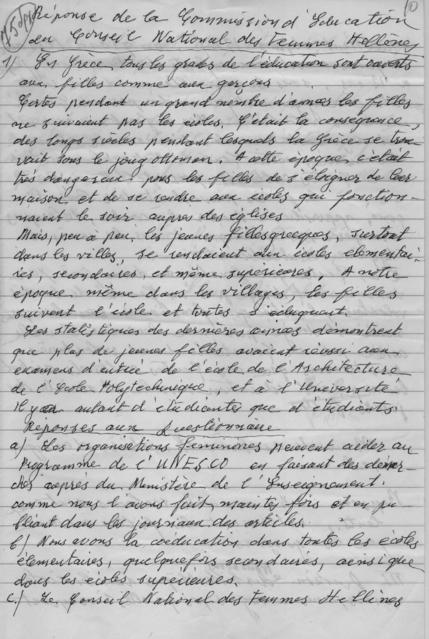 Réponse de la Commission d'Education
du Conseil National des Femmes Hellènes
1) En Grèce, tous les grades de l'éducation sont ouverts
aux filles comme aux garçons
Certes pendant un grand nombre d'années les filles
ne suivaient pas les écoles. C'était la conséquence,
des longs siècles pendant lesquels la Grèce se trou-
vait sous le joug ottoman. A cette époque, c'était
très dangereux pour les filles de s'éloigner de leur
maison et de se rendre aux écoles qui fonction-
naient le soir auprès des églises
Mais, peu à peu, les jeunes filles grecques, surtout
dans les villes, se rendaient aux écoles élémentai-
res, secondaires et même supérieures. A nôtre
époque même dans les villages, les filles
suivent l'école et toutes s'éduquent.
Les statistiques des dernières années démontrent
que plus de jeunes filles avaient réussi aux
examens d'entrée de l'école de l'Architecture
de l'Ecole Polytechnique, et à l'Université
il y a autant d'étudiantes que d'étudiants.
Réponses aux Questionnaire
a) Les organisations féminines peuvent aider au
Programme de l'UNESCO en faisant des démar-
ches auprès du Ministère de l'Enseignement.
comme nous l'avons fait, maintes fois et en pu-
bliant dans les journaux des articles.
b) Nous avons la coéducation dans toutes les écoles
élémentaires, quelquefois secondaires, ainsi que
dans les écoles supérieures.
c) Le Conseil National des Femmes Hellènes